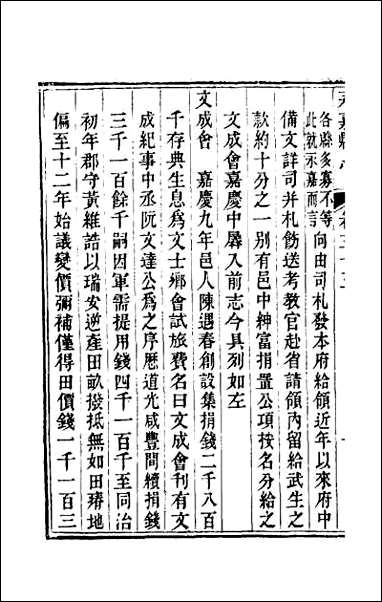 永嘉縣志　卷三十五
各縣多寡不等
此就永嘉而言
向由司札發本府給領近年以來府中
備文詳司并札飭送考教官赴省請領內留給武生之
款約十分之一别有邑中紳富捐置公項按名分給之
文成會嘉慶中羼入前志今具列如左
文成會　嘉慶九年邑人陳遇春創設集捐錢二千八百
千存典生息為文士鄉會試旅費名曰文成會刊有文
成紀事中丞阮文達公為之序歷道光咸豐間續捐錢
三千一百餘千嗣因軍需提用錢四千一百千至同治
初年郡守黃維誥以瑞安逆產田畝撥抵無如田瘠地
偏至十二年始議變價彌補僅得田價錢一千一百三